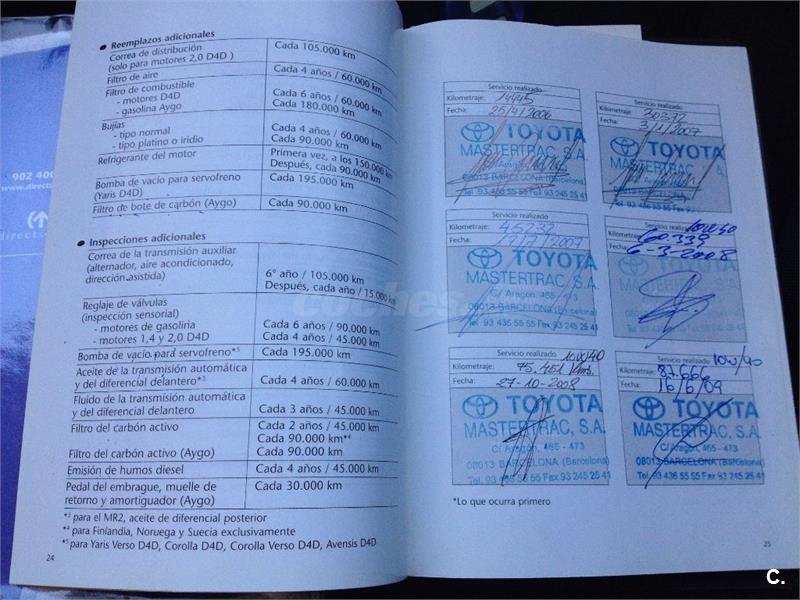 902 400
www.direct
directs
● Reemplazos adicionales
Correa de distribución Cada 105.000 km
(solo para motores 2,0 D4D )
Filtro de aire Cada 4 años / 60.000 km
Filtro de combustible
- motores D4D Cada 6 años / 60.000 km
- gasolina Aygo Cada 180.000 km
Bujías
- tipo normal Cada 4 años / 60.000 km
- tipo platino o iridio Cada 90.000 km
Refrigerante del motor Primera vez, a los 150.000 km
Después, cada 90.000 km
Bomba de vacío para servofreno Cada 195.000 km
(Yaris D4D)
Filtro de bote de carbón (Aygo) Cada 90.000 km
● Inspecciones adicionales
Correa de la transmisión auxiliar
(alternador, aire acondicionado, 6° año / 105.000 km
dirección asistida) Después, cada año / 15.000 km
Reglaje de válvulas
(inspección sensorial)
- motores de gasoliria Cada 6 años / 90.000 km
- motores 1,4 y 2,0 D4D Cada 4 años / 45.000 km
Bomba de vacío para servofreno*5 Cada 195.000 km
Aceite de la transmisión automática
y del diferencial delantero*3 Cada 4 años / 60.000 km
Fluído de la transmisión automática
y del diferencial delantero Cada 3 años / 45.000 km
Filtro del carbón activo Cada 2 años / 45.000 km
Cada 90.000 km*4
Filtro del carbón activo (Aygo) Cada 90.000 km
Emisión de humos diesel Cada 4 años / 45.000 km
Pedal del embrague, muelle de Cada 30.000 km
retorno y amortiguador (Aygo)
*3 para el MR2, aceite de diferencial posterior
*4 para Finlandia, Noruega y Suecia exclusivamente
*5 para Yaris Verso D4D, Corolla D4D, Corolla Verso D4D, Avensis D4D
24
Servicio realizado
Kilometraje: 14445
Fecha: 25/4/2006
TOYOTA
MASTERTRAC, S.A.
C/ Aragon,
08013 BARCELONA
Tel. 93 436 55 55 Fax 93 245 25 41
Servicio realizado
Kilometraje: 30372
Fecha: 3/1/2007
TOYOTA
MASTERTRAC, S.A.
Tel. 93 436 55 55 Fax 93
Servicio realizado
Kilometraje: 45232
Fecha: 17/7/2007
TOYOTA
MASTERTRAC, S.A.
C/ Aragon, 465 - 473
08013 BARCELONA (Barcelona)
Tel. 93 436 55 55 Fax 93 245 25 41
Servicio realizado 10W40
Kilometraje: 60339
Fecha: 6-3-2008
TOYOTA
MASTERTRAC, S.A.
Servicio realizado 10W40
Kilometraje: 75.451 Kms.
Fecha: 27-10-2008
TOYOTA
MASTERTRAC, S.A.
C/ Aragon, 465 - 473
08013 BARCELONA (Barcelona)
Tel. 93 436 55 55 Fax 93 245 25 41
Servicio realizado 10W/40
Kilometraje: 87.666
Fecha: 16/6/09
TOYOTA
MASTERTRAC, S.A.
C/ Aragon, 465 - 473
08013 BARCELONA (Barcelona)
Tel. 93 436 55 55 Fax 93 245 25 41
*Lo que ocurra primero
25
coches
C.